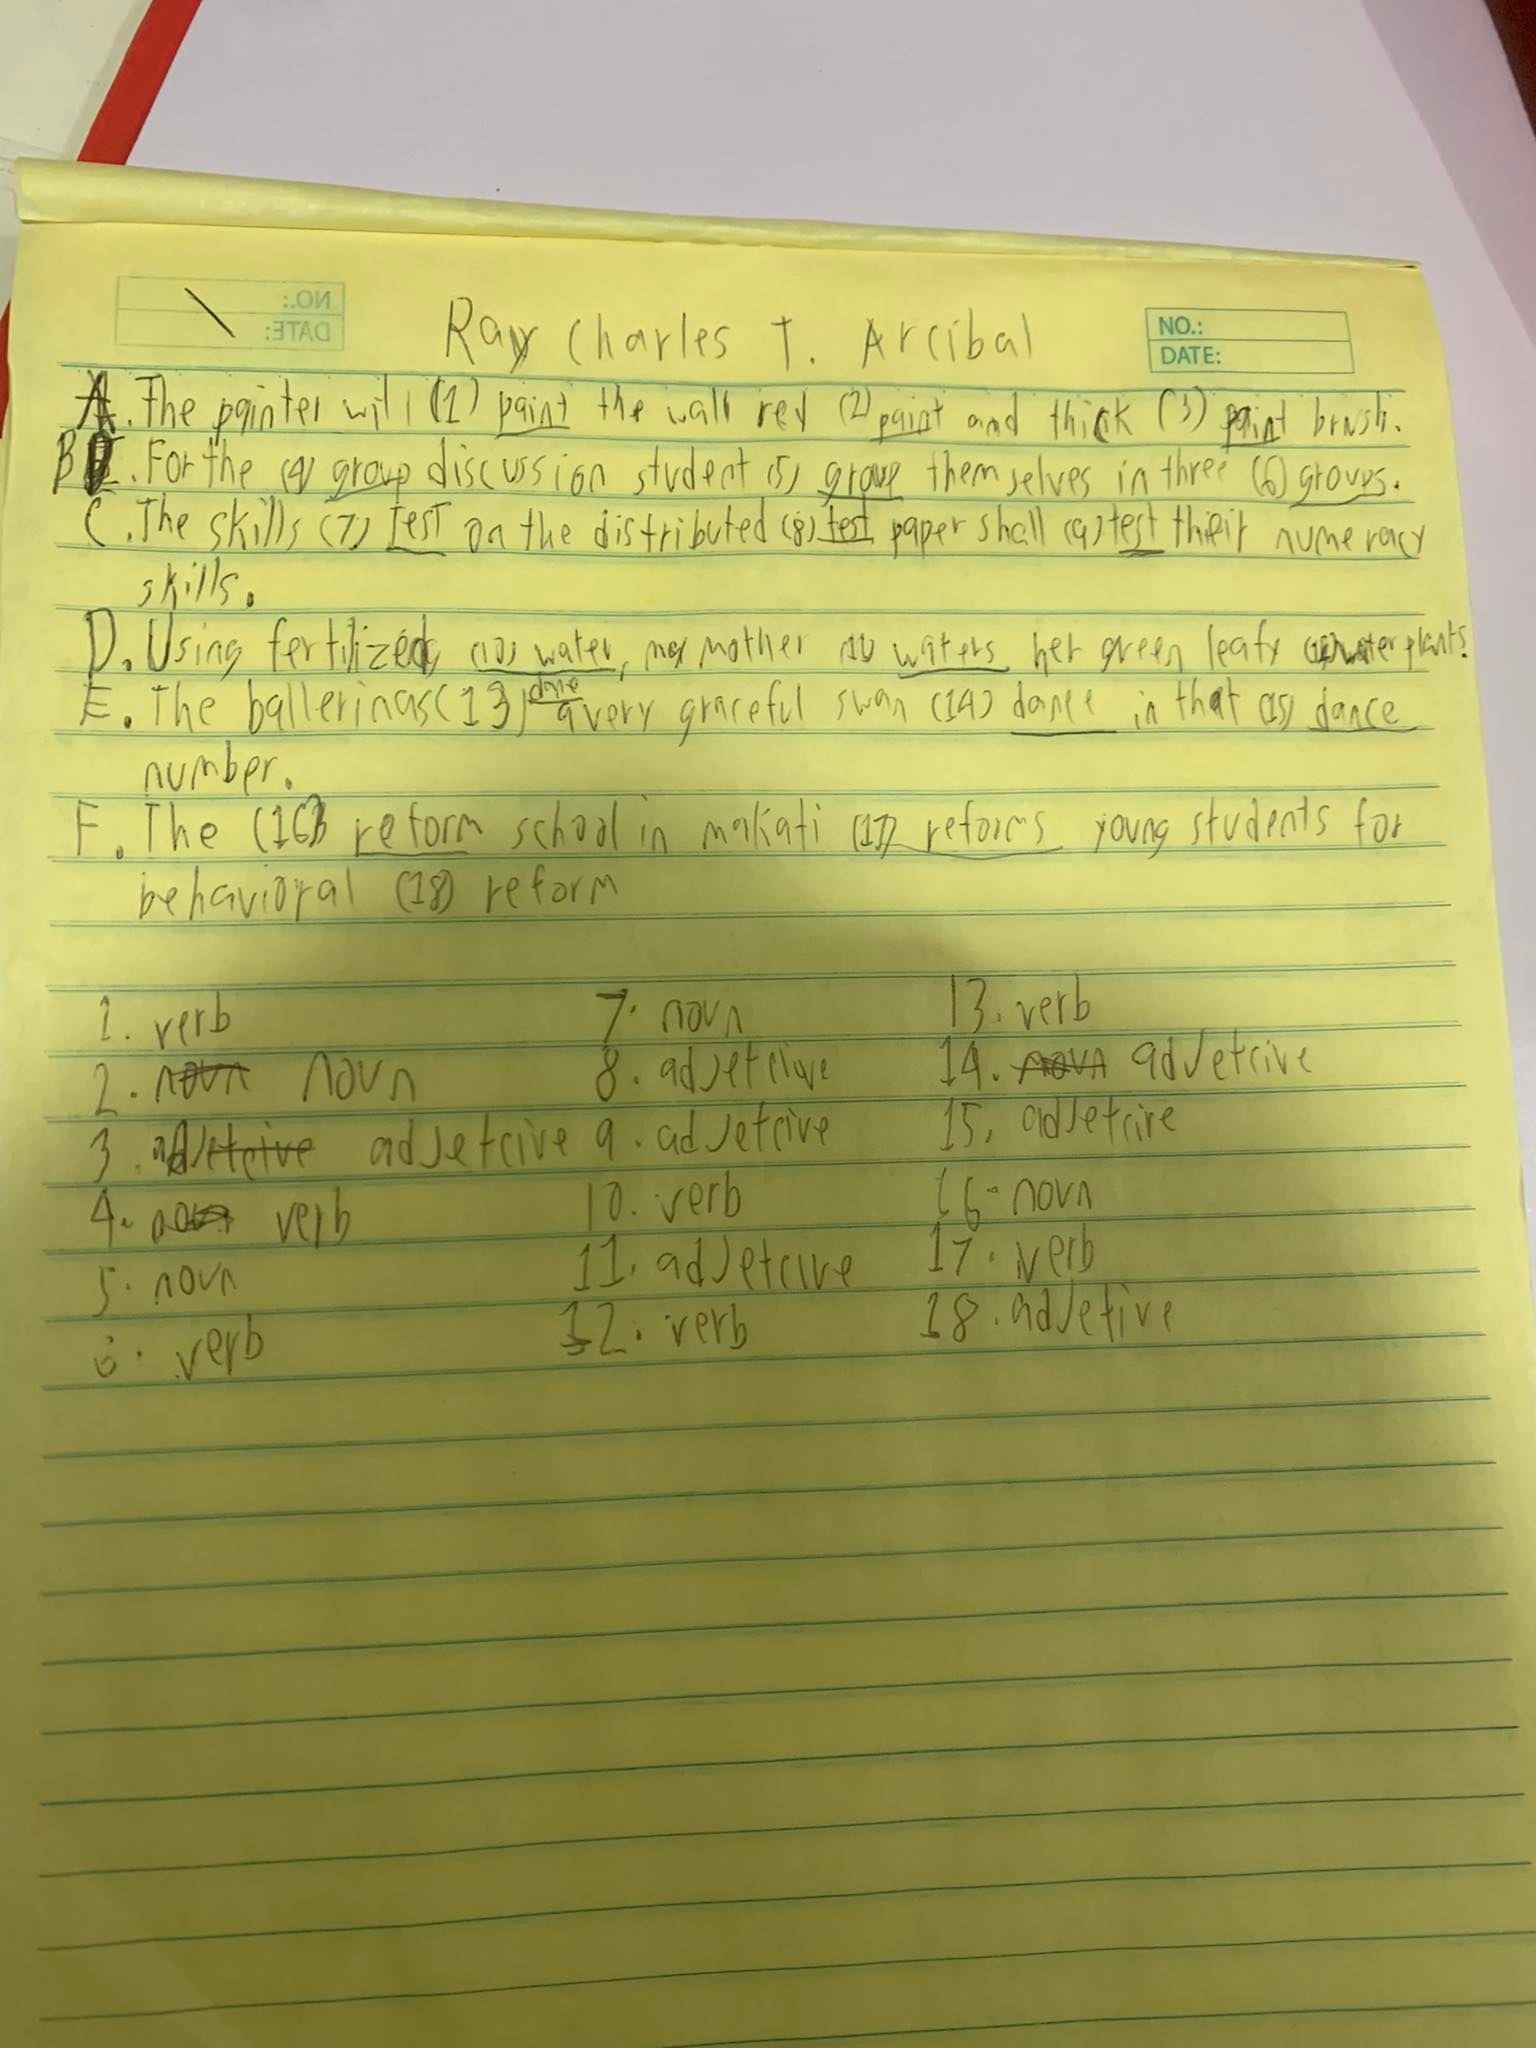 NO.:
DATE:
Ray Charles T. Arcibal
NO.:
DATE:
A. The painter will (1) paint the wall red (2) paint and thick (3) paint brush.
B. For the (4) group discussion student (5) group themselves in three (6) groups.
C. The skills (7) test on the distributed (8) test paper shall (9) test their numeracy
skills.
D. Using fertilized (10) water, my mother (11) waters her green leafy (12) water plants.
E. The ballerinas (13) dance a very graceful swan (14) dance in that (15) dance
number.
F. The (16) reform school in makati (17) reforms young students for
behavioral (18) reform
1. verb 7. noun 13. verb
2. noun noun 8. adjetcive 14. noun adjetcive
3. adjetcive adjetcive 9. adjetcive 15. adjetcive
4. noun verb 10. verb 16. noun
5. noun 11. adjetcive 17. verb
6. verb 12. verb 18. adjetive